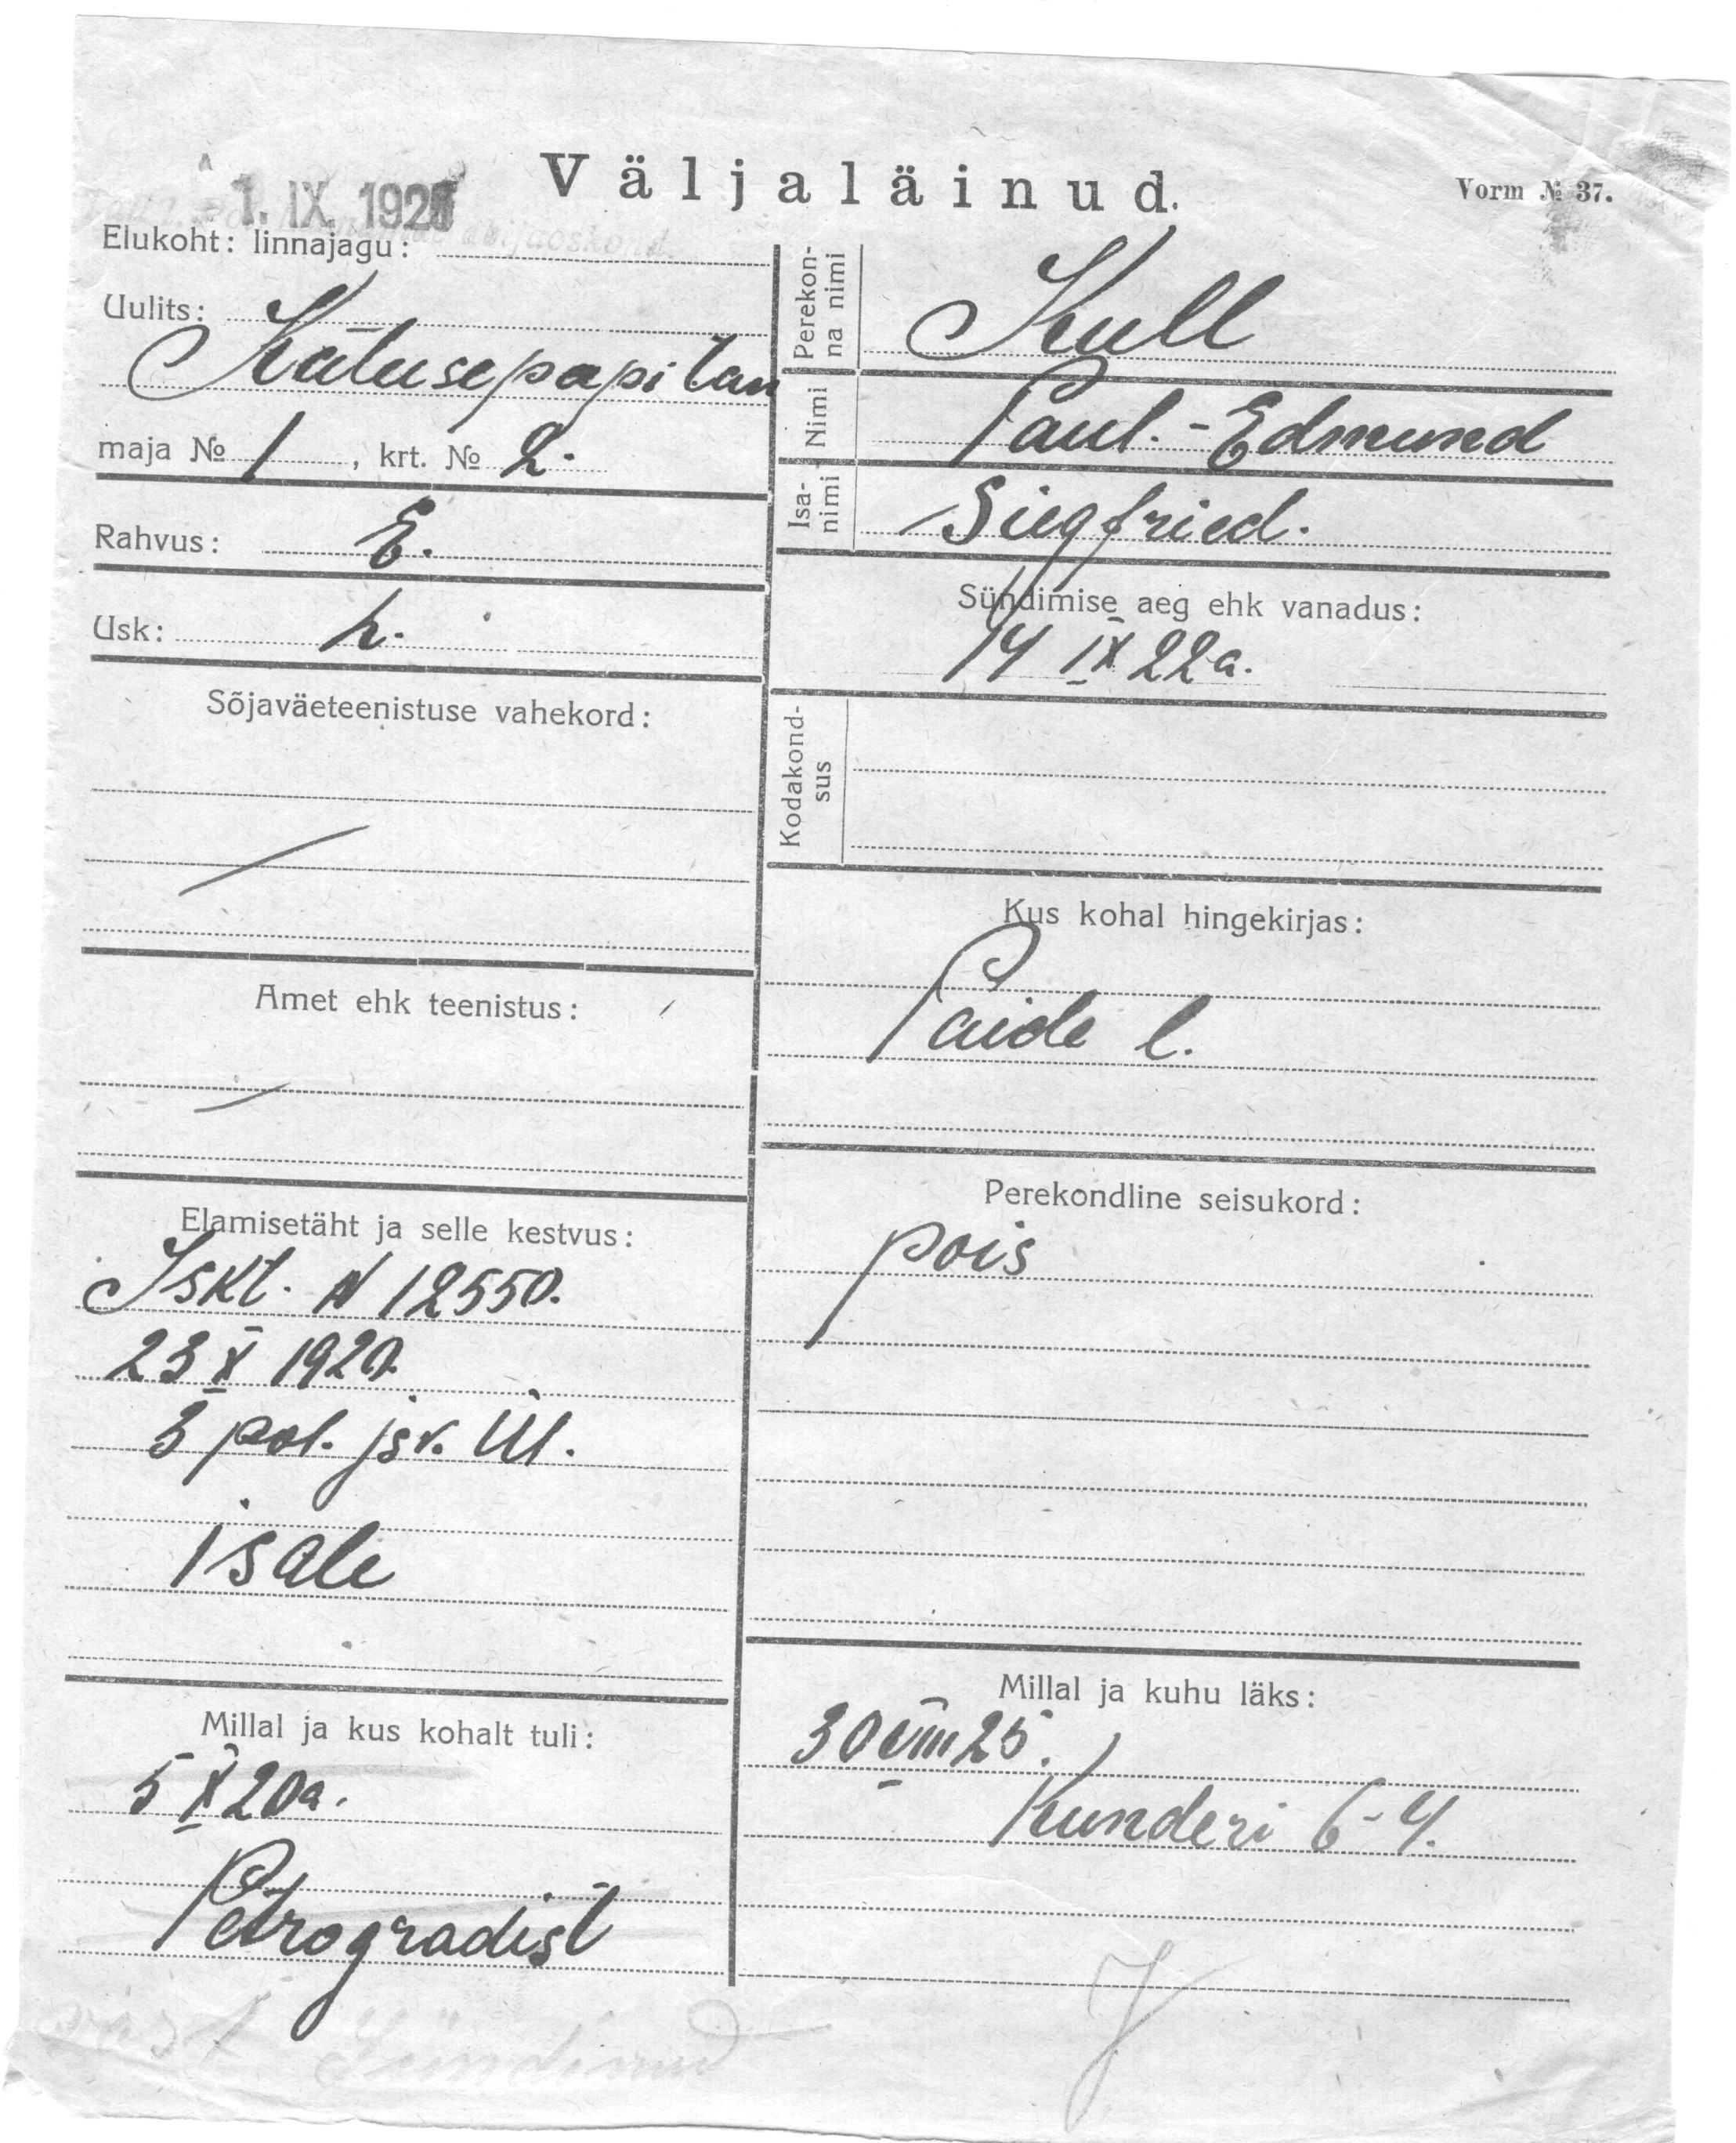 Väljaläinud.
Vorm № 37.
1. IX 1925
Elukoht: linnajagu:
Uulits:
Katusepapi tän
maja № 1, krt. № 2.
Rahvus: E.
Usk: L.
Sõjaväeteenistuse vahekord:
Amet ehk teenistus:
Elamisetäht ja selle kestvus:
Iskt. N 12550.
23 X 1920.
3 pol. jsk. ül.
isale
Millal ja kus kohalt tuli:
5 X 20a.
Petrogradist
sündinud
Perekon-
na nimi
Kull
Nimi
Paul.-Edmund
Isa-
nimi
Siegfried.
Sündimise aeg ehk vanadus:
14 IX 22a.
Kodakond-
sus
Kus kohal hingekirjas:
Paide l.
Perekondline seisukord:
pois
Millal ja kuhu läks:
30 VIII 25.
Kunderi 6-4.